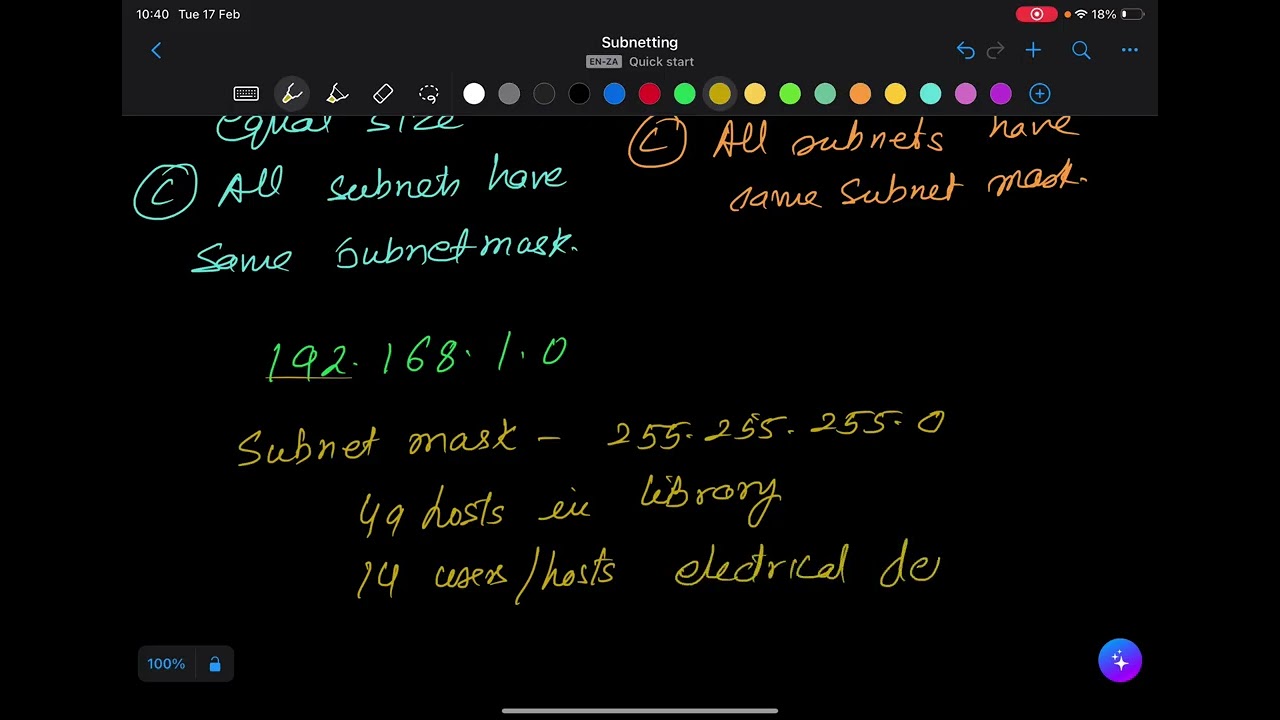 10:40 Tue 17 Feb
18%
Subnetting
EN-ZA Quick start
Equal size
C All subnets have
same subnetmask.
C All subnets have
same subnet mask.
192.168.1.0
Subnet mask - 255.255.255.0
49 hosts in library
14 users/hosts electrical de
100%